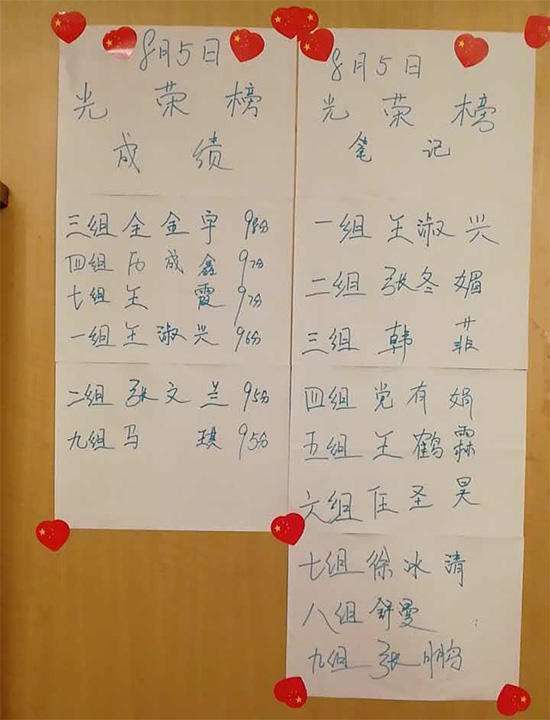 8月5日
光荣榜
成绩
三组 全金宇 98分
四组 历成鑫 97分
七组 王霞 97分
一组 王淑兴 96分
二组 张文兰 95分
九组 马琪 95分
8月5日
光荣榜
笔记
一组 王淑兴
二组 张冬媚
三组 韩菲
四组 党有娟
五组 王鹤霖
六组 任圣昊
七组 徐冰清
八组 舒曼
九组 张鹏